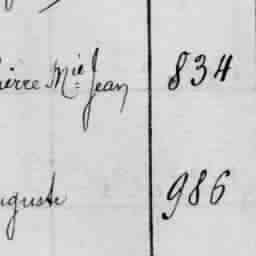 ierre Mie Jean 834
uguste 986